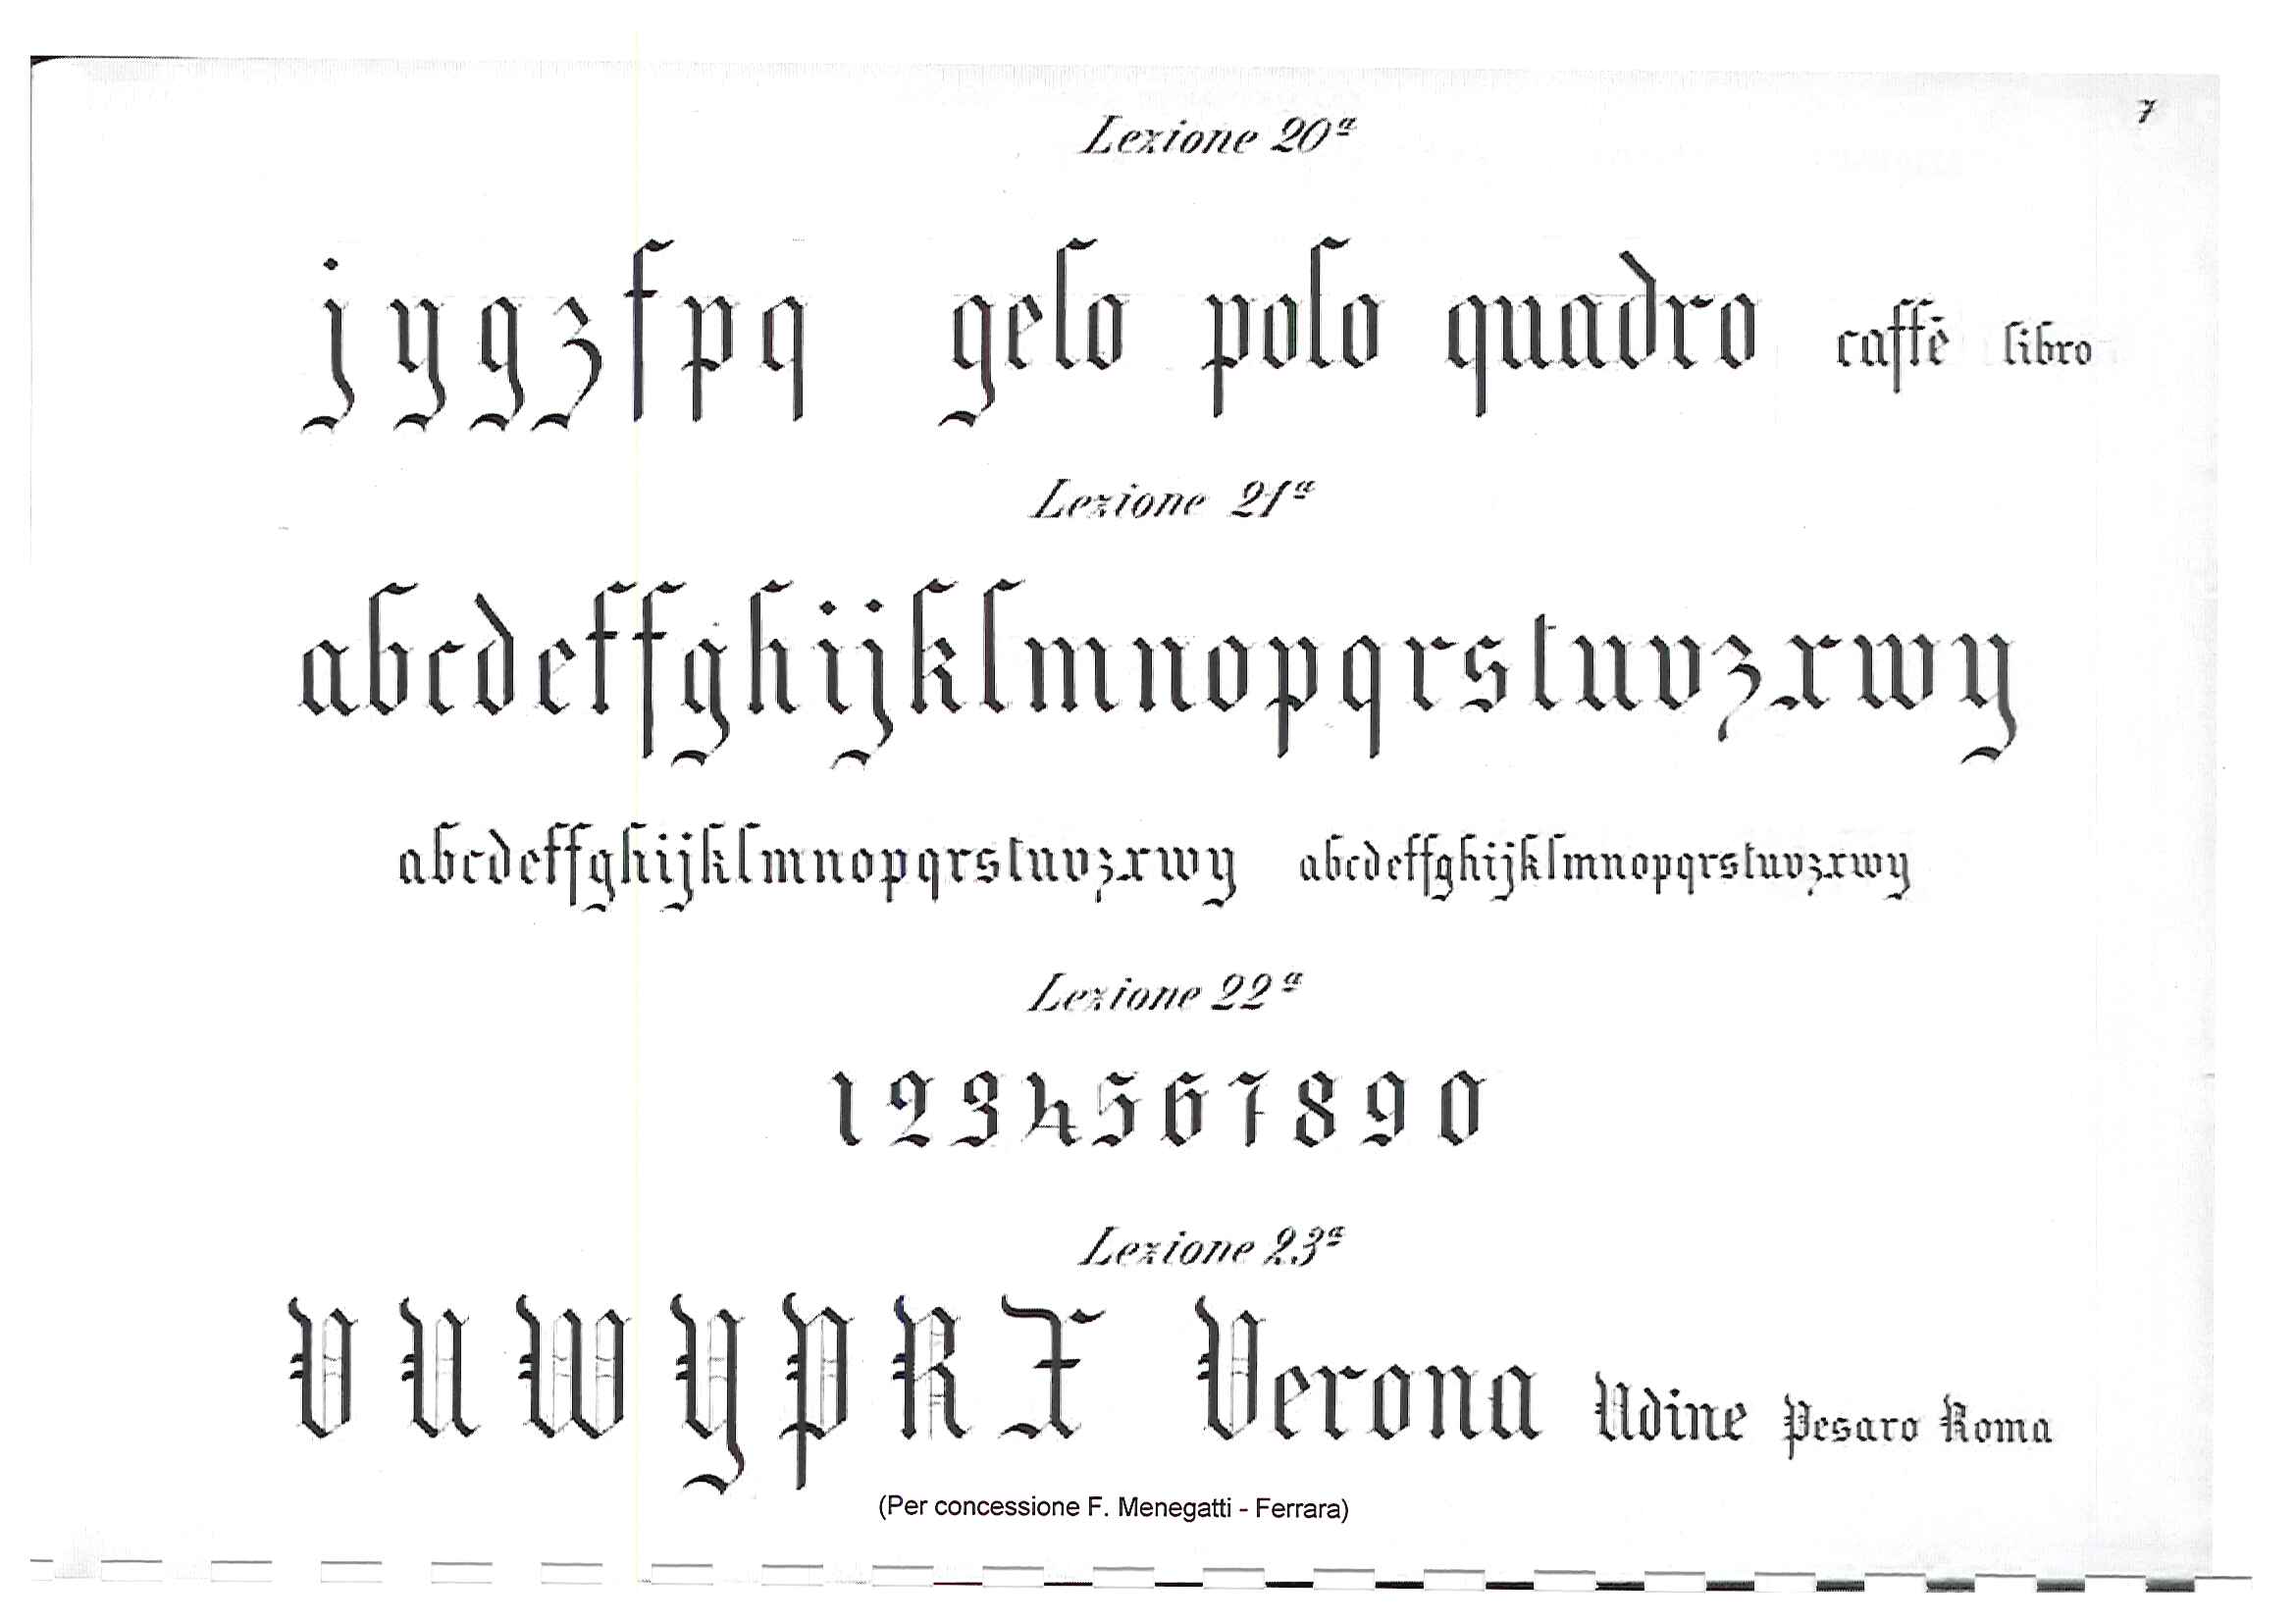 7
Lezione 20ª
j y g z f p q gelo polo quadro caffè libro
Lezione 21ª
abcdeffghijklmnopqrstuvzxwy
abcdeffghijklmnopqrstuvzxwy abcdeffghijklmnopqrstuvzxwy
Lezione 22ª
1 2 3 4 5 6 7 8 9 0
Lezione 23ª
V U W Y P R X Verona Udine Pesaro Roma
(Per concessione F. Menegatti - Ferrara)